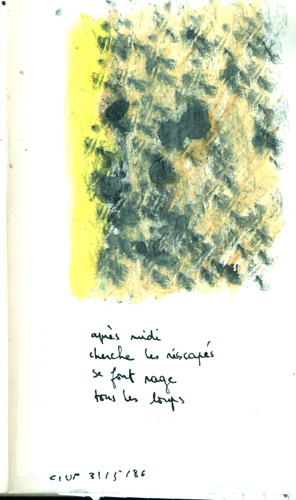 après midi
cherche les rescapés
se font rage
tous les loups
CIUP 31/5/86